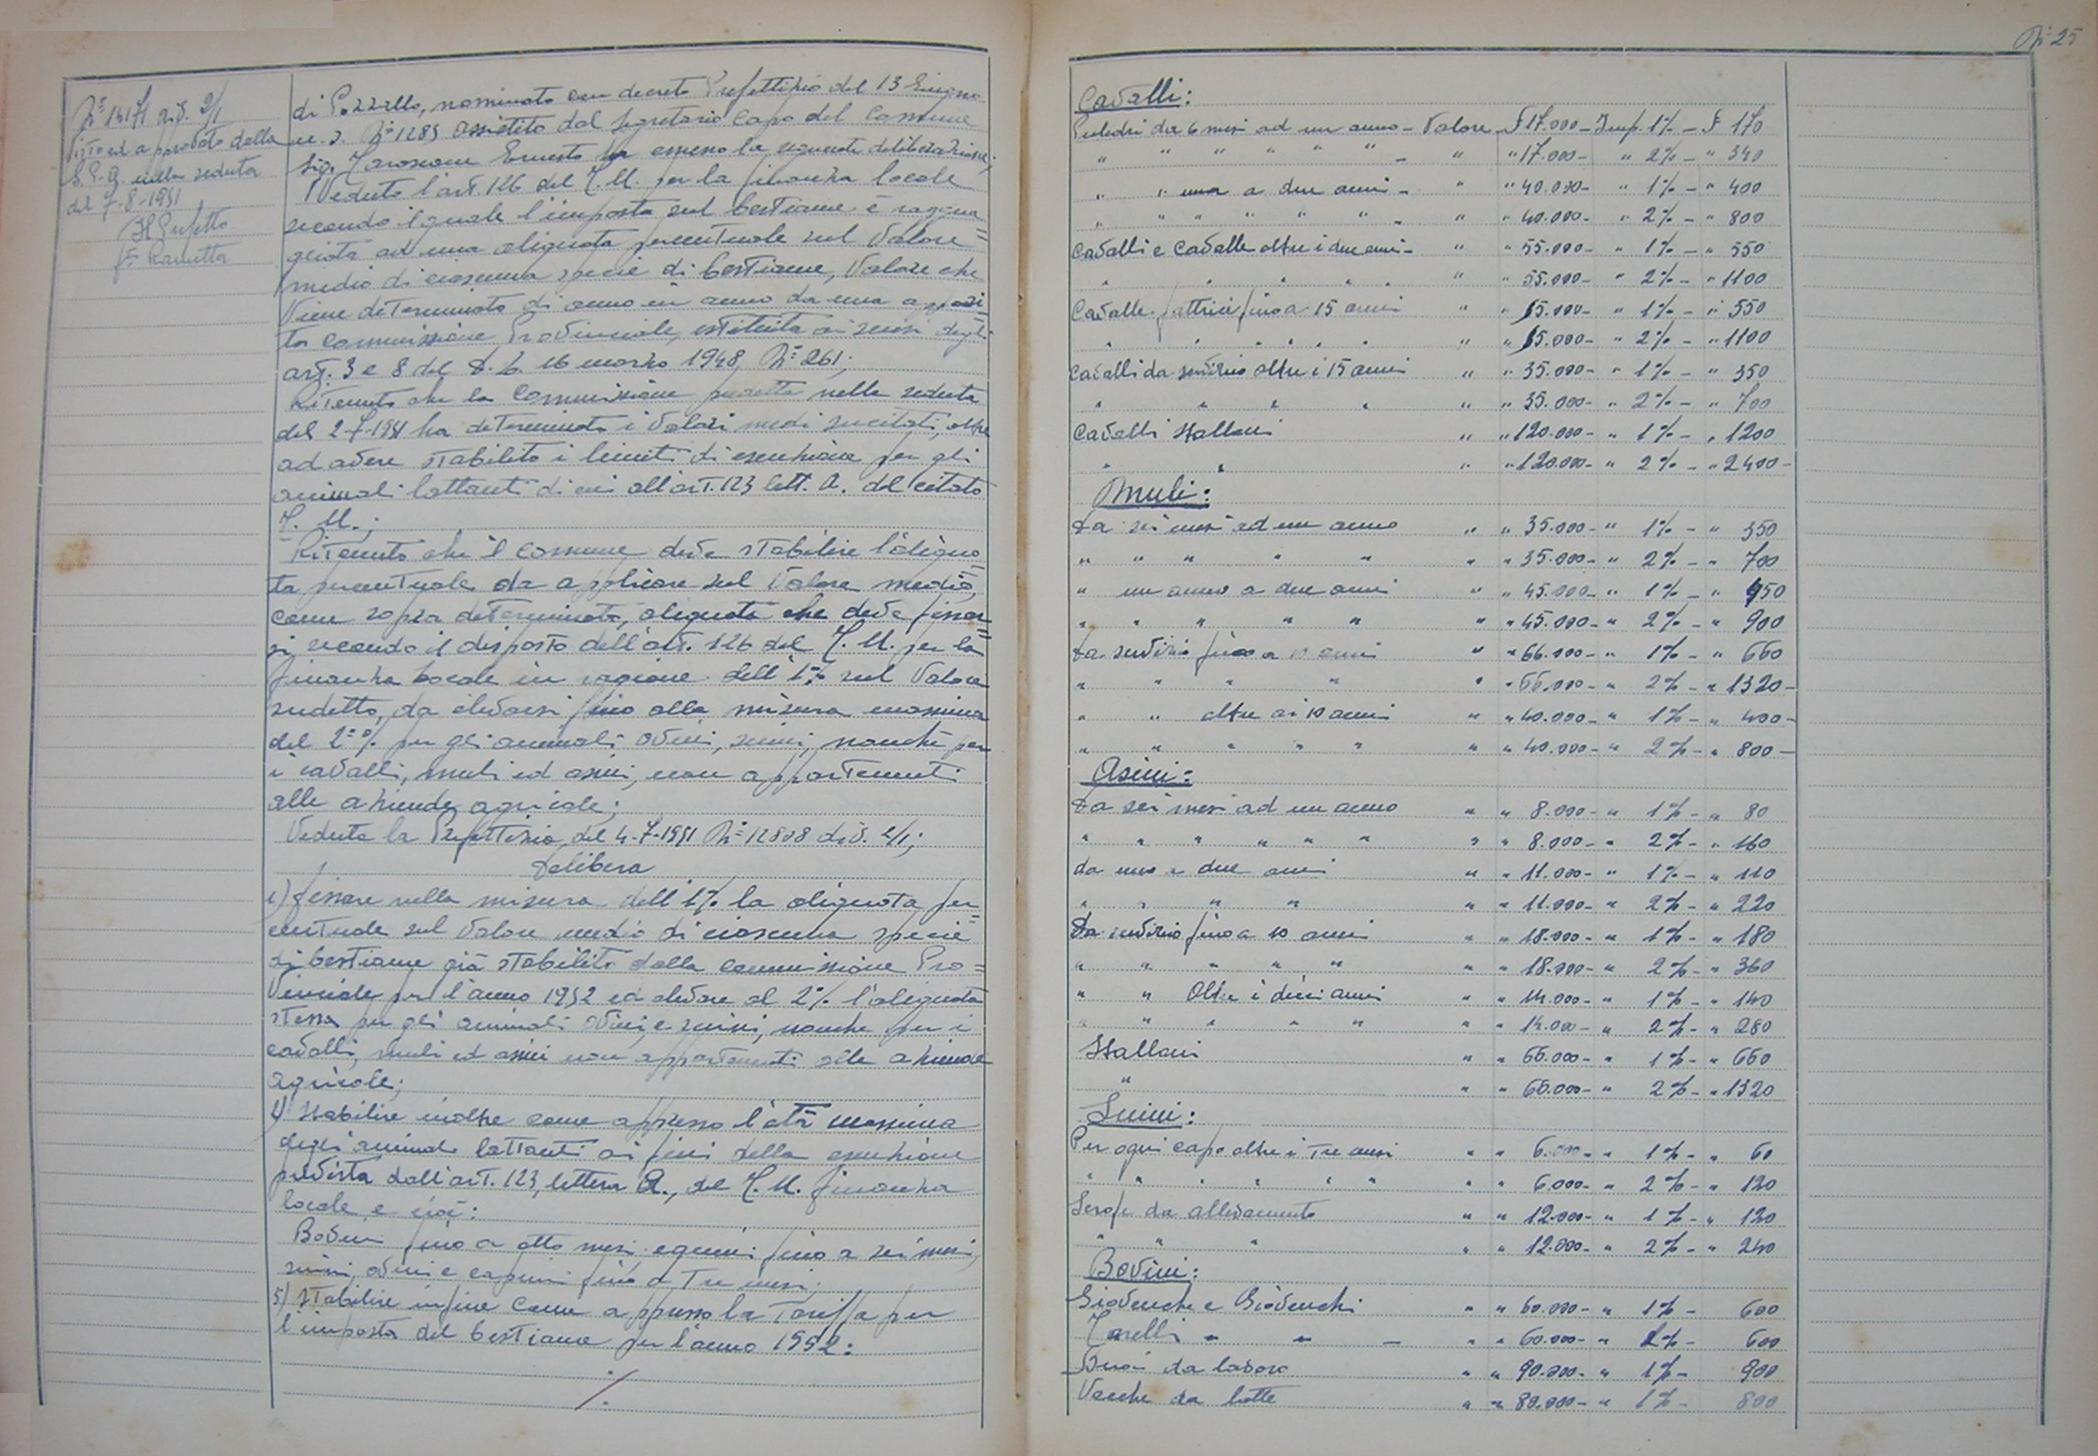 Nº 14171 div. 2/1
Visto ed approvato dalla
G. P. A. nella seduta
del 7-8-1951
Il Prefetto
fto Ramitta
di Pozzallo, nominato con decreto Prefettizio del 13 Giugno
u. s. Nº 1289 assistito dal Segretario Capo del Comune
Sig. Ernesto ha emesso la seguente deliberazione;
Veduto l'art. 126 del T. U. per la finanza locale
secondo il quale l'imposta sul bestiame è raggua=
gliata ad una aliquota percentuale sul Valore
medio di ciascuna specie di bestiame, Valore che
viene determinato di anno in anno da una apposi=
ta Commissione Provinciale, istituita ai sensi degli
art. 3 e 8 del D. L. 16 marzo 1948, Nº 261;
Ritenuto che la Commissione predetta nella seduta
del 2-7-1951 ha determinato i Valori medi sucitati, oltre
ad avere stabilito i limiti di esenzione per gli
animali lattanti di cui all'art. 123 lett. A. del citato
T. U.;
Ritenuto che il Comune deve stabilire l'aliquo=
ta percentuale da applicare sul Valore medio,
come sopra determinato, aliquota che deve fissar=
si secondo il disposto dell'art. 126 del T. U. per la
finanza locale in ragione dell'1% sul Valore
sudetto, da elevarsi fino alla misura massima
del 2% per gli animali ovini, suini, nonchè per
i cavalli, muli ed asini, non appartenenti
alle aziende agricole;
Veduta la Prefettizia del 4-7-1951 Nº 12808 div. 2/1;
Delibera
1) fissare nella misura dell'1% la aliquota per=
centuale sul Valore medio di ciascuna specie
di bestiame già stabilito dalla Commissione Pro=
vinciale per l'anno 1952 ed elevare al 2% l'aliquota
stessa per gli animali ovini, e suini, nonchè per i
cavalli, muli ed asini non appartenenti alle aziende
agricole;
2) Stabilire inoltre come appresso l'età massima
degli animali lattanti ai fini della esenzione
prevista dall'art. 123, lettera A., del T. U. finanza
locale, e cioè:
Bovini fino a otto mesi, equini fino a sei mesi,
suini, ovini e caprini fino a tre mesi;
3) Stabilire infine come appresso la tariffa per
l'imposta del bestiame per l'anno 1952:
./.
Nº 25
Cavalli:
Puledri da 6 mesi ad un anno - Valore £ 17.000 - Imp. 1% - £ 170
" " " " " " " - " " 17.000 - " 2% - " 340
" " uno a due anni - " " 40.000 - " 1% - " 400
" " " " " " - " " 40.000 - " 2% - " 800
Cavalli e Cavalle oltre i due anni - " " 55.000 - " 1% - " 550
" " " " " " " 55.000 - " 2% - " 1100
Cavalle fattrici fino a 15 anni " " 55.000 - " 1% - " 550
" " " " " " " " 55.000 - " 2% - " 1100
Cavalli da servizio oltre i 15 anni " " 35.000 - " 1% - " 350
" " " " " " 35.000 - " 2% - " 700
Cavalli Stalloni " " 120.000 - " 1% - " 1200
" " " " 120.000 - " 2% - " 2400 -
Muli:
Da sei mesi ad un anno " " 35.000 - " 1% - " 350
" " " " " " " 35.000 - " 2% - " 700
" un anno a due anni " " 45.000 - " 1% - " 450
" " " " " " " 45.000 - " 2% - " 900
Da servizio fino a 10 anni " " 66.000 - " 1% - " 660
" " " " " " 66.000 - " 2% - " 1320 -
" " oltre ai 10 anni " " 40.000 - " 1% - " 400 -
" " " " " " " 40.000 - " 2% - " 800 -
Asini:
Da sei mesi ad un anno " " 8.000 - " 1% - " 80
" " " " " " " " 8.000 - " 2% - " 160
da uno a due anni " " 11.000 - " 1% - " 110
" " " " " " 11.000 - " 2% - " 220
Da servizio fino a 10 anni " " 18.000 - " 1% - " 180
" " " " " " " 18.000 - " 2% - " 360
" " Oltre i dieci anni " " 14.000 - " 1% - " 140
" " " " " " " 14.000 - " 2% - " 280
Stalloni " " 66.000 - " 1% - " 660
" " " 66.000 - " 2% - " 1320
Suini:
Per ogni capo oltre i tre mesi " " 6.000 - " 1% - " 60
" " " " " " " " 6.000 - " 2% - " 120
Scrofe da allevamento " " 12.000 - " 1% - " 120
" " " " " 12.000 - " 2% - " 240
Bovini:
Giovenche e Giovenchi " " 60.000 - " 1% - 600
Torelli " " - " " 60.000 - " 1% - 600
Buoi da lavoro " " 90.000 - " 1% - 900
Vacche da latte " " 80.000 - " 1% - 800